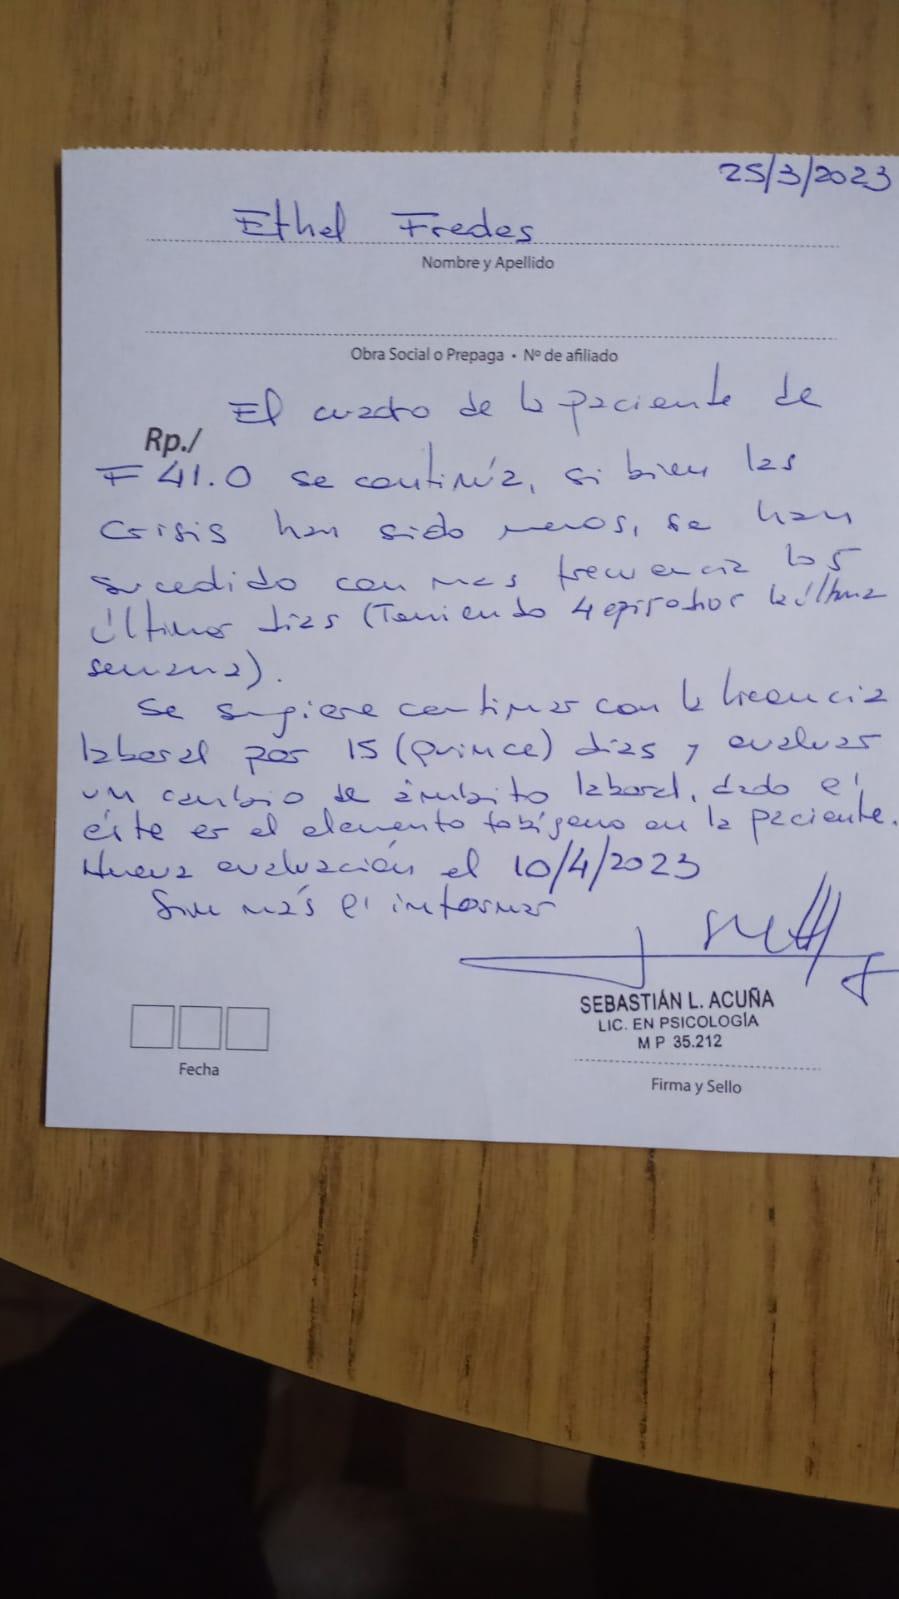 25/3/2023
Ethel Fredes
Nombre y Apellido
Obra Social o Prepaga • Nº de afiliado
El cuadro de la paciente de
Rp./
F 41.0 se continúa, si bien las
crisis han sido menos, se han
sucedido con mas frecuencia los
últimos días (Teniendo 4 episodios la última
semana).
Se sugiere continuar con la licencia
laboral por 15 (quince) días y evaluar
un cambio de ámbito laboral, dado
éste es el elemento fobígeno en la paciente.
Nueva evaluación el 10/4/2023
Sin más informar
SEBASTIÁN L. ACUÑA
LIC. EN PSICOLOGÍA
M P 35.212
Fecha
Firma y Sello